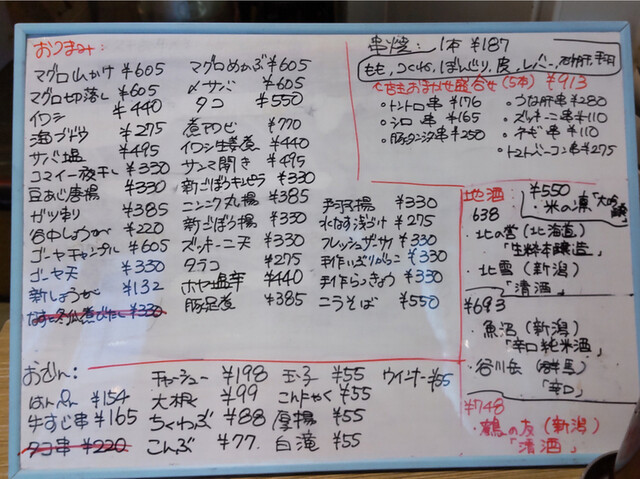 おつまみ:
マグロ山かけ ¥605
マグロ切落し ¥605
イワシ ¥440
海ブドウ ¥275
サバ塩 ¥495
コマイ一夜干し ¥330
豆あじ唐揚 ¥330
ガツ刺 ¥385
谷中しょうが ¥220
ゴーヤチャンプル ¥605
ゴーヤ天 ¥330
新しょうが ¥132
なすと冬瓜煮びたし ¥330
マグロめかぶ ¥605
〆サバ ¥605
タコ ¥550
煮アワビ ¥770
イワシ生姜煮 ¥440
サンマ開き ¥495
新ごぼうキンピラ ¥330
ニンニク丸揚 ¥385
新ごぼう揚 ¥330
ズッキーニ天 ¥330
タラコ ¥275
ホヤ塩辛 ¥440
豚足煮 ¥385
¥330
水なす浅づけ ¥275
フレッシュザーサイ ¥330
手作いぶりがっこ ¥330
手作らっきょう ¥330
こうそば ¥550
串焼: 1本 ¥187
もも, つくね, ぼんじり, 皮, レバー,
おまかせ盛合せ(5本) ¥913
・トントロ串 ¥176
・シロ串 ¥165
・豚タンシタ串 ¥250
・うな肝串 ¥280
・ズッキーニ串 ¥110
・ネギ串 ¥110
・トマトベーコン串 ¥275
地酒: ¥550
・米の凛
638
・北の誉(北海道)
「生粋本醸造」
・北雪(新潟)
「清酒」
¥693
・魚沼(新潟)
「辛口純米酒」
・谷川岳(群馬)
「辛口」
¥748
・鶴の友(新潟)
「清酒」
おでん:
はんぺん ¥154
牛すじ串 ¥165
タコ串 ¥220
チャーシュー ¥198
大根 ¥99
ちくわぶ ¥88
こんぶ ¥77
玉子 ¥55
こんにゃく ¥55
厚揚 ¥55
白滝 ¥55
ウインナー ¥55